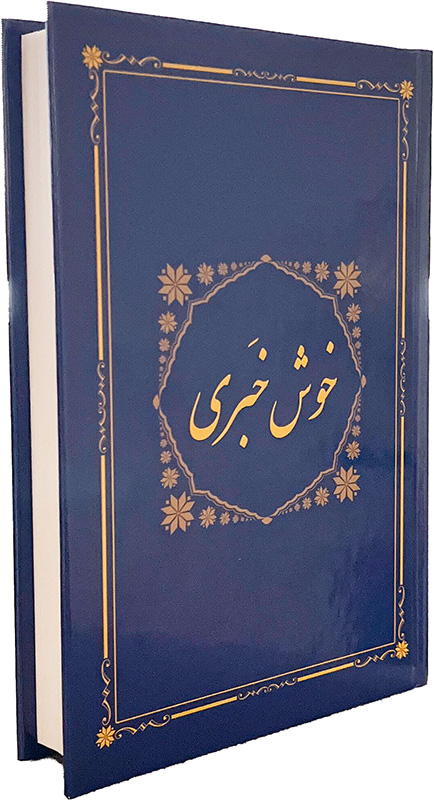 خوش خَبری